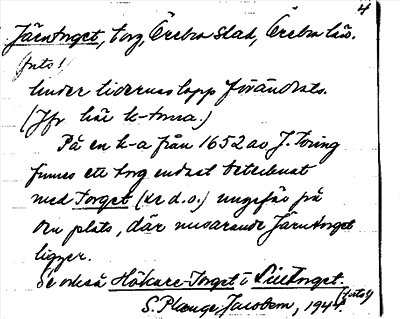 4
Järntorget, torg, Örebro stad, Örebro län.
(forts!)
Under tidernas lopp förändrats.
(Jfr här k-torna.)
På en k-a från 1652 av J. Toring
finnes ett torg endast betecknat
med Torget (se d.o.) ungefär på
den plats, där nuvarande Järntorget
ligger.
Se också Hökare-Torget i Liltorget.
(forts!)
S. Plænge Jacobson, 1944.